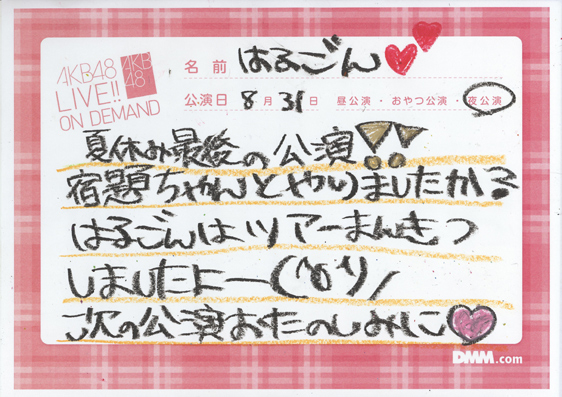 AKB48
LIVE!!
ON DEMAND
AKB
48
名前 はるごん
公演日 8月31日 昼公演・おやつ公演・夜公演
夏休み最後の公演!!
宿題ちゃんとやりましたか?
はるごんはツアーまんきつ
しましたよー
次の公演おたのしみに
DMM.com